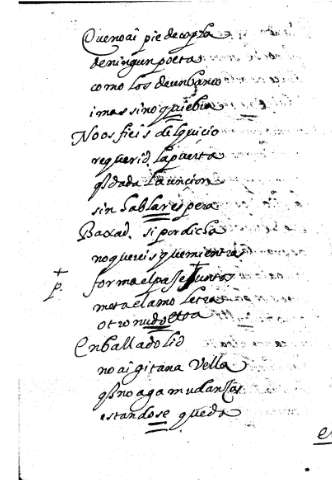 Que no ai pie de copla
de ningun poeta
como los de un banco
i mas si no quiebra
No os fieis del quicio
requerid la puerta
q̃ dada la uncion
sin hablar espera
Baxad si por dicha
no quereis que mientras
p. forma el passe punta
meta el amo letra
otro nudo
En balladolid
no ai gitana vella
q̃ no aga mudanzas
estandose queda
e